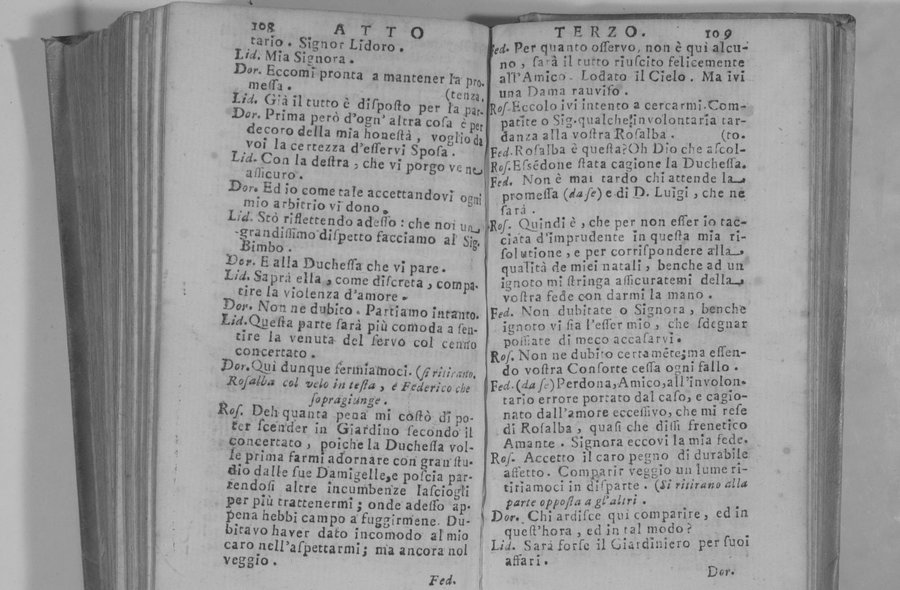 108 ATTO
tario. Signor Lidoro.
Lid. Mia Signora.
Dor. Eccomi pronta a mantener la pro-
messa. (tenza.
Lid. Già il tutto è disposto per la par-
Dor. Prima però d'ogn' altra cosa è per
decoro della mia honestà, voglio da
voi la certezza d'esservi Sposa.
Lid. Con la destra, che vi porgo ve ne
assicuro.
Dor. Ed io come tale accettandovi ogni
mio arbitrio vi dono.
Lid. Stò riflettendo adesso: che noi un
grandissimo dispetto facciamo al Sig.
Bimbo.
Dor. E alla Duchessa che vi pare.
Lid. Saprà ella, come discreta, compa-
tire la violenza d'amore.
Dor. Non ne dubito. Partiamo intanto.
Lid. Questa parte sarà più comoda a sen-
tire la venuta del servo col cenno
concertato.
Dor. Qui dunque fermiamoci. (si ritirano.
Rosalba col velo in testa, e Federico che
sopragiunge.
Ros. Deh quanta pena mi costò di po-
ter scender in Giardino secondo il
concertato, poiche la Duchessa vol-
se prima farmi adornare con gran stu-
dio dalle sue Damigelle, e poscia par-
tendosi altre incumbenze lasciogli
per più trattenermi; onde adesso ap-
pena hebbi campo a fuggirmene. Du-
bitavo haver dato incomodo al mio
caro nell'aspettarmi; ma ancora nol
veggio.
Fed.
TERZO. 109
Fed. Per quanto osservo, non è qui alcu-
no, sarà il tutto riuscito felicemente
all'Amico. Lodato il Cielo. Ma ivi
una Dama ravviso.
Ros. Eccolo ivi intento a cercarmi. Com-
patite o Sig. qualche involontaria tar-
danza alla vostra Rosalba. (to.
Fed. Rosalba è questa? Oh Dio che ascol-
Ros. Essēdone stata cagione la Duchessa.
Fed. Non è mai tardo chi attende la
promessa (da se) e di D. Luigi, che ne
sarà.
Ros. Quindi è, che per non esser io tac-
ciata d'imprudente in questa mia ri-
solutione, e per corrispondere alla
qualità de miei natali, benche ad un
ignoto mi stringa assicuratemi della
vostra fede con darmi la mano.
Fed. Non dubitate o Signora, benche
ignoto vi sia l'esser mio, che sdegnar
possiate di meco accasarvi.
Ros. Non ne dubito certamēte; ma essen-
do vostra Consorte cessa ogni fallo.
Fed. (da se) Perdona, Amico, all'involon-
tario errore portato dal caso, e cagio-
nato dall'amore eccessivo, che mi rese
di Rosalba, quasi che dissi frenetico
Amante. Signora eccovi la mia fede.
Ros. Accetto il caro pegno di durabile
affetto. Comparir veggio un lume ri-
tiriamoci in disparte. (Si ritirano alla
parte opposta a gl'altri.
Dor. Chi ardisce qui comparire, ed in
quest'hora, ed in tal modo?
Lid. Sarà forse il Giardiniero per suoi
affari.
Dor.